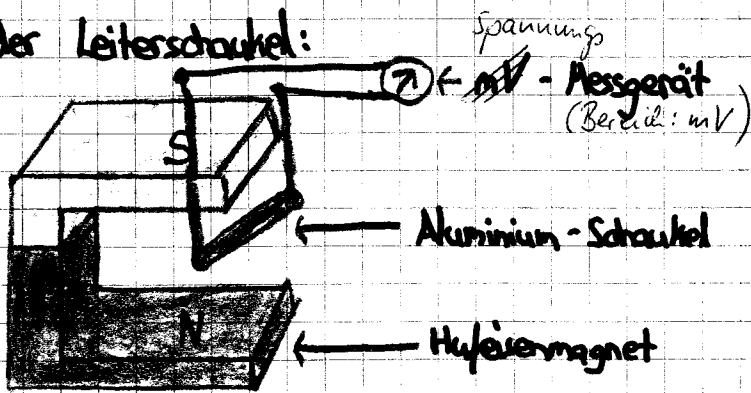 der Leiterschaukel:
Spannungs
← mV - Messgerät
(Bereich: mV)
S
← Aluminium - Schaukel
N
← Hufeisenmagnet